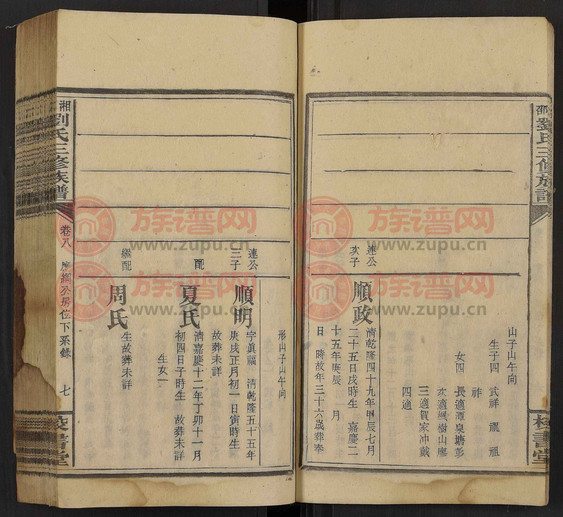 邵劉氏三修族譜
山子山午向
生子四 武祥 祖
祥
女四 長適潭泉塘彭
次適楓樹山廖
三適賀家冲戴
四適
連公
次子
順政
清乾隆四十九年甲辰七月
二十五日戌時生 嘉慶二
十五年庚辰 月
日 時故年三十六歲葬奉
形山子山午向
連公
三子
順明
字眞福 清乾隆五十五年
庚戌正月初一日寅時生
故葬未詳
配
夏氏
清嘉慶十二年丁卯十一月
初四日子時生 故葬未詳
生女一
繼配
周氏
生故葬未詳
湘劉氏三修族譜
卷八
公房位下系錄
七
書堂
族谱网
www.zupu.cn
族谱网
www.zupu.cn
族谱网
www.zupu.cn
族谱网
www.zupu.cn